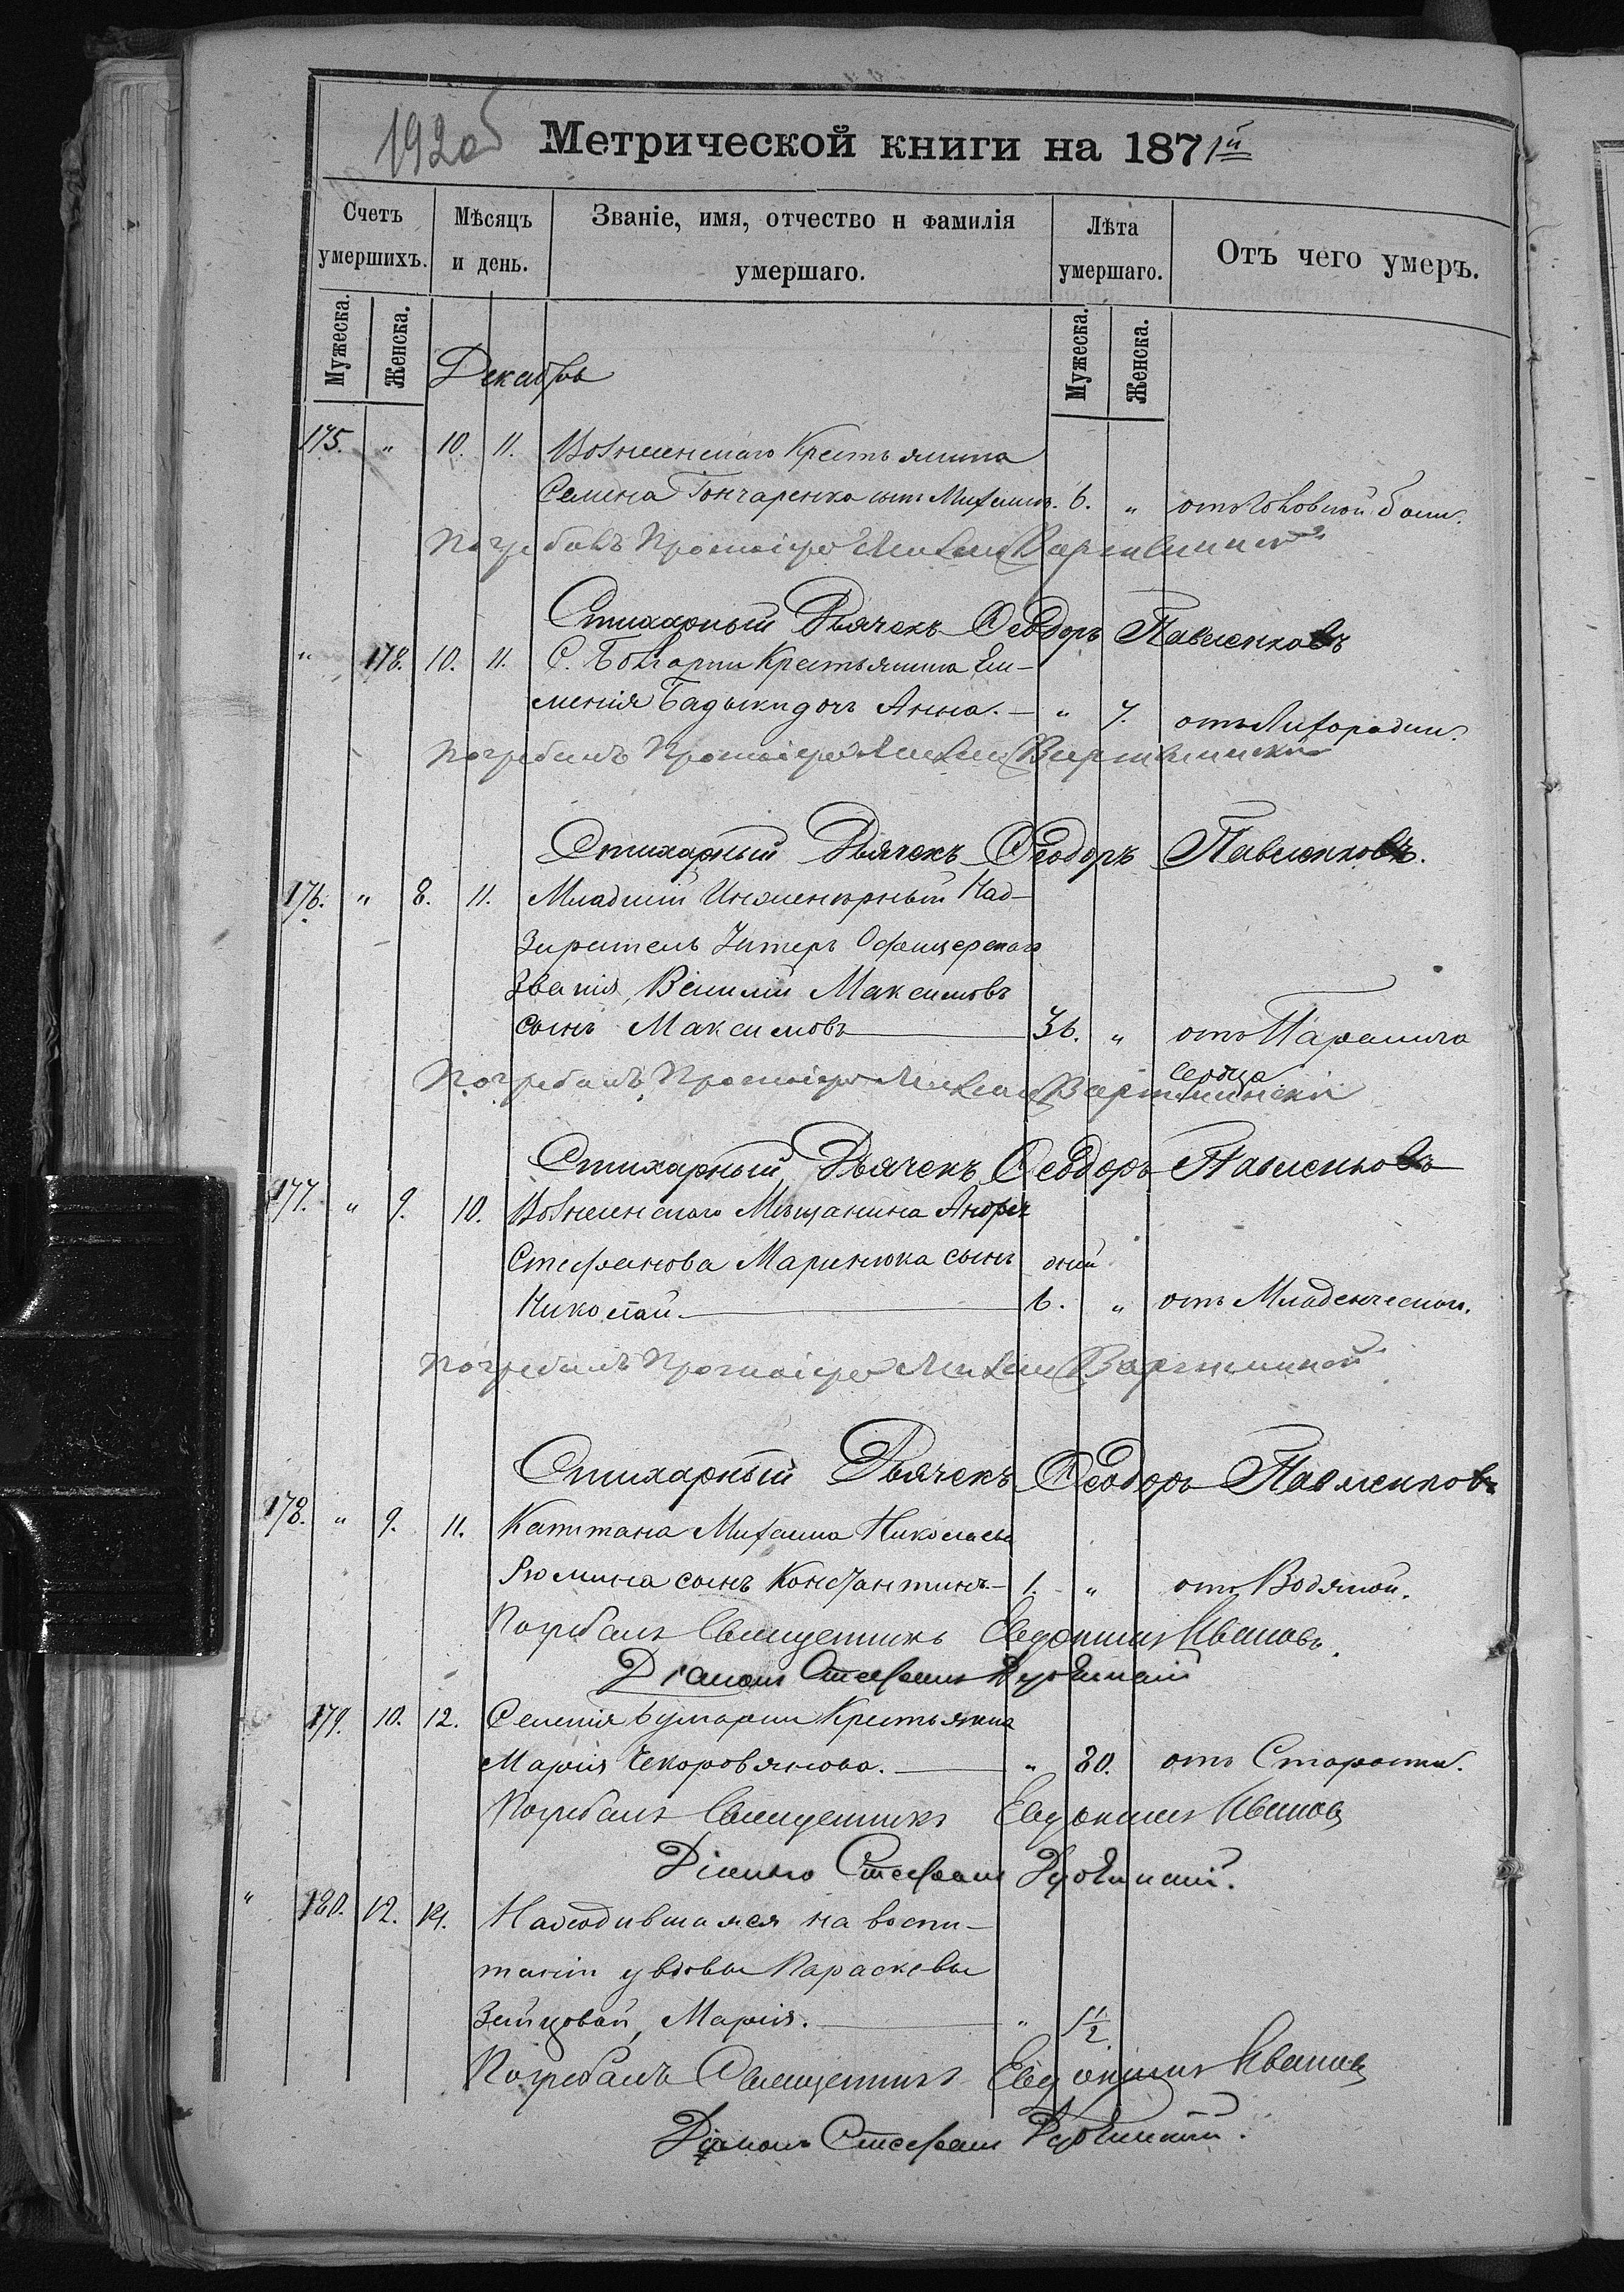 192об
Метрической книги на 1871й
Счетъ умершихъ.
Мѣсяцъ и день.
Званіе, имя, отчество и фамилія умершаго.
Лѣта умершаго.
Отъ чего умеръ.
Мужеска.
Женска.
Мужеска.
Женска.
Декабрь
175. " 10. 11. Крестьянина
Семена Гончаренка сынъ 6. " отъ Головной боли.
Погребалъ Протоіерей
Стихарный Дьячекъ Ѳеодоръ Павленковъ
" 178. 10. 11. С. Болгарки Крестьянина Ем-
дочь Анна. — " 7. отъ Лихорадки.
Погребалъ Протоіерей
Стихарный Дьячекъ Ѳеодоръ Павленковъ.
176. " 8. 11. Младшій Инженерный Над-
зиратель Унтеръ Офицерскаго
Званія, Василій Максимовъ
сынъ Максимовъ — 36. " отъ Паралича
сердца
Погребалъ Протоіерей
Стихарный Дьячекъ Ѳеодоръ Павленковъ
177. " 9. 10. Мѣщанина Андрея
Стефанова Маринюка сынъ дней
Николай — 6. " отъ Младенческой.
Погребалъ Протоіерей
Стихарный Дьячекъ Ѳеодоръ Павленковъ
178. " 9. 11. Капитана Михаила Николаева
Рюмина сынъ Константинъ — 1. " отъ Водяной.
Погребалъ Священникъ Евдокимъ Ивановъ.
Діаконъ Стефанъ
179. 10. 12. Селенія Булгарки Крестьянка
Марія — " 80. отъ Старости.
Погребалъ Священникъ Евдокимъ Ивановъ
Діаконъ Стефанъ
" 180. 12. 14. Находившаяся на воспи-
таніи у вдовы Параскевы
Зайцовой, Марія. — " 1½
Погребалъ Священникъ Евдокимъ Ивановъ
Діаконъ Стефанъ